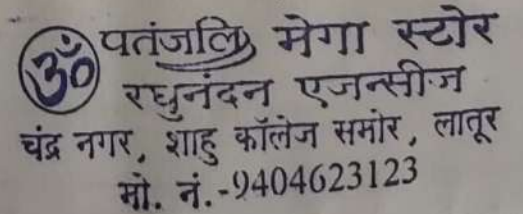 ॐ पतंजलि मेगा स्टोर
रघुनंदन एजन्सीज
चंद्र नगर, शाहु कॉलेज समोर, लातूर
मो. नं.-9404623123